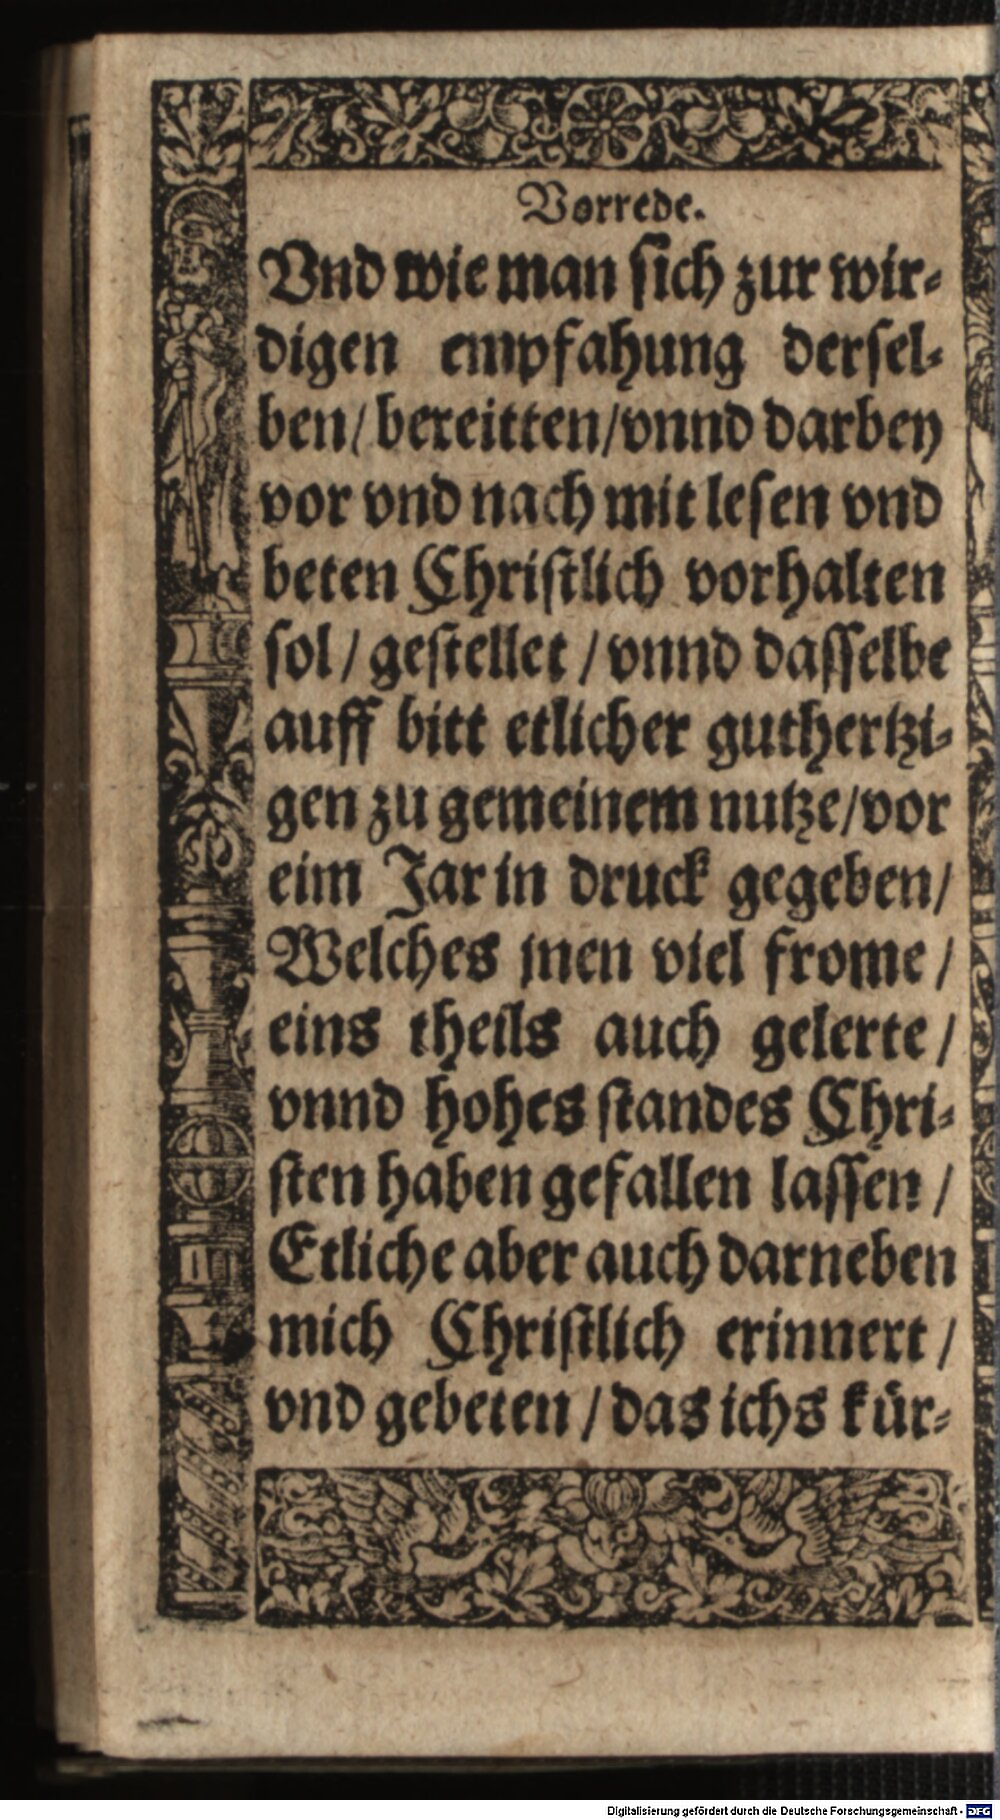 Vorrede.
Vnd wie man sich zur wir-
digen empfahung dersel-
ben / bereitten / vnnd darbey
vor vnd nach mit lesen vnd
beten Christlich vorhalten
sol / gestellet / vnnd dasselbe
auff bitt etlicher guthertzi-
gen zu gemeinem nutze / vor
eim Jar in druck gegeben /
Welches jnen viel frome /
eins theils auch gelerte /
vnnd hohes standes Chri-
sten haben gefallen lassen /
Etliche aber auch darneben
mich Christlich erinnert /
vnd gebeten / das ichs kür-
Digitalisierung gefördert durch die Deutsche Forschungsgemeinschaft - DFG